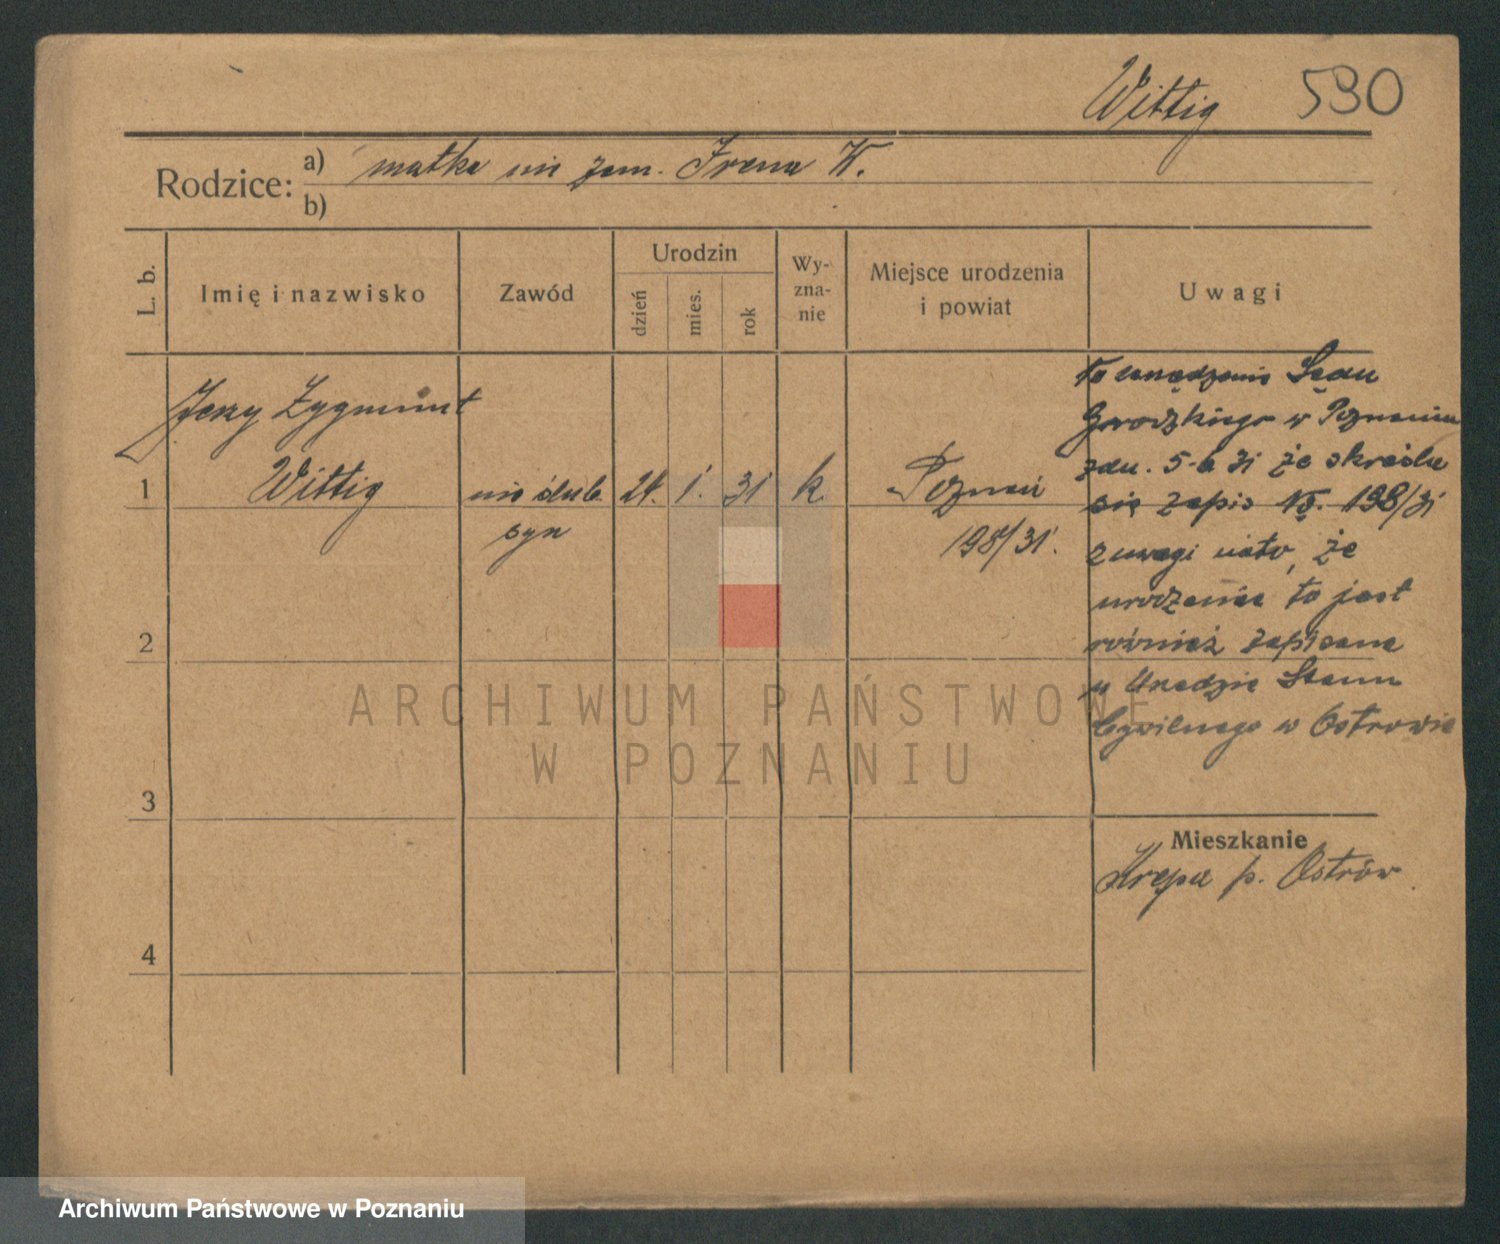 Wittig 530
Rodzice:
a) matka nie zam. Irena W.
b)
L. b.
Imię i nazwisko
Zawód
Urodzin
dzień
mies.
rok
Wy-
zna-
nie
Miejsce urodzenia
i powiat
Uwagi
Jerzy Zygmunt
1 Wittig nie ślub. 24. 1. 31 k. Poznań
syn 198/31.
zarządzenie Sądu
Grodzkiego w Poznaniu
zdn. 5.6 31 że skreśla
się zapis 198/31
z uwagi na to, że
urodzenie to jest
również zapisane
w Urzędzie Stanu
Cywilnego w Ostrowie
2
3
4
Mieszkanie
Krępa p. Ostrów.
ARCHIWUM PAŃSTWOWE
W POZNANIU
Archiwum Państwowe w Poznaniu